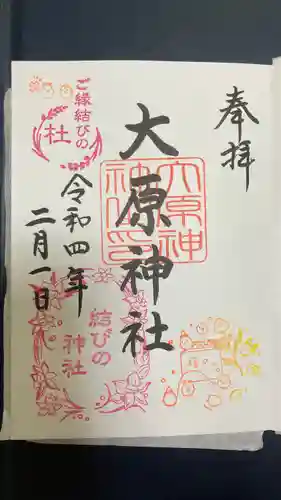 奉拝
大原神社
大原神
社之印
ご縁結びの
社
令和四年
二月一日
結びの
神社